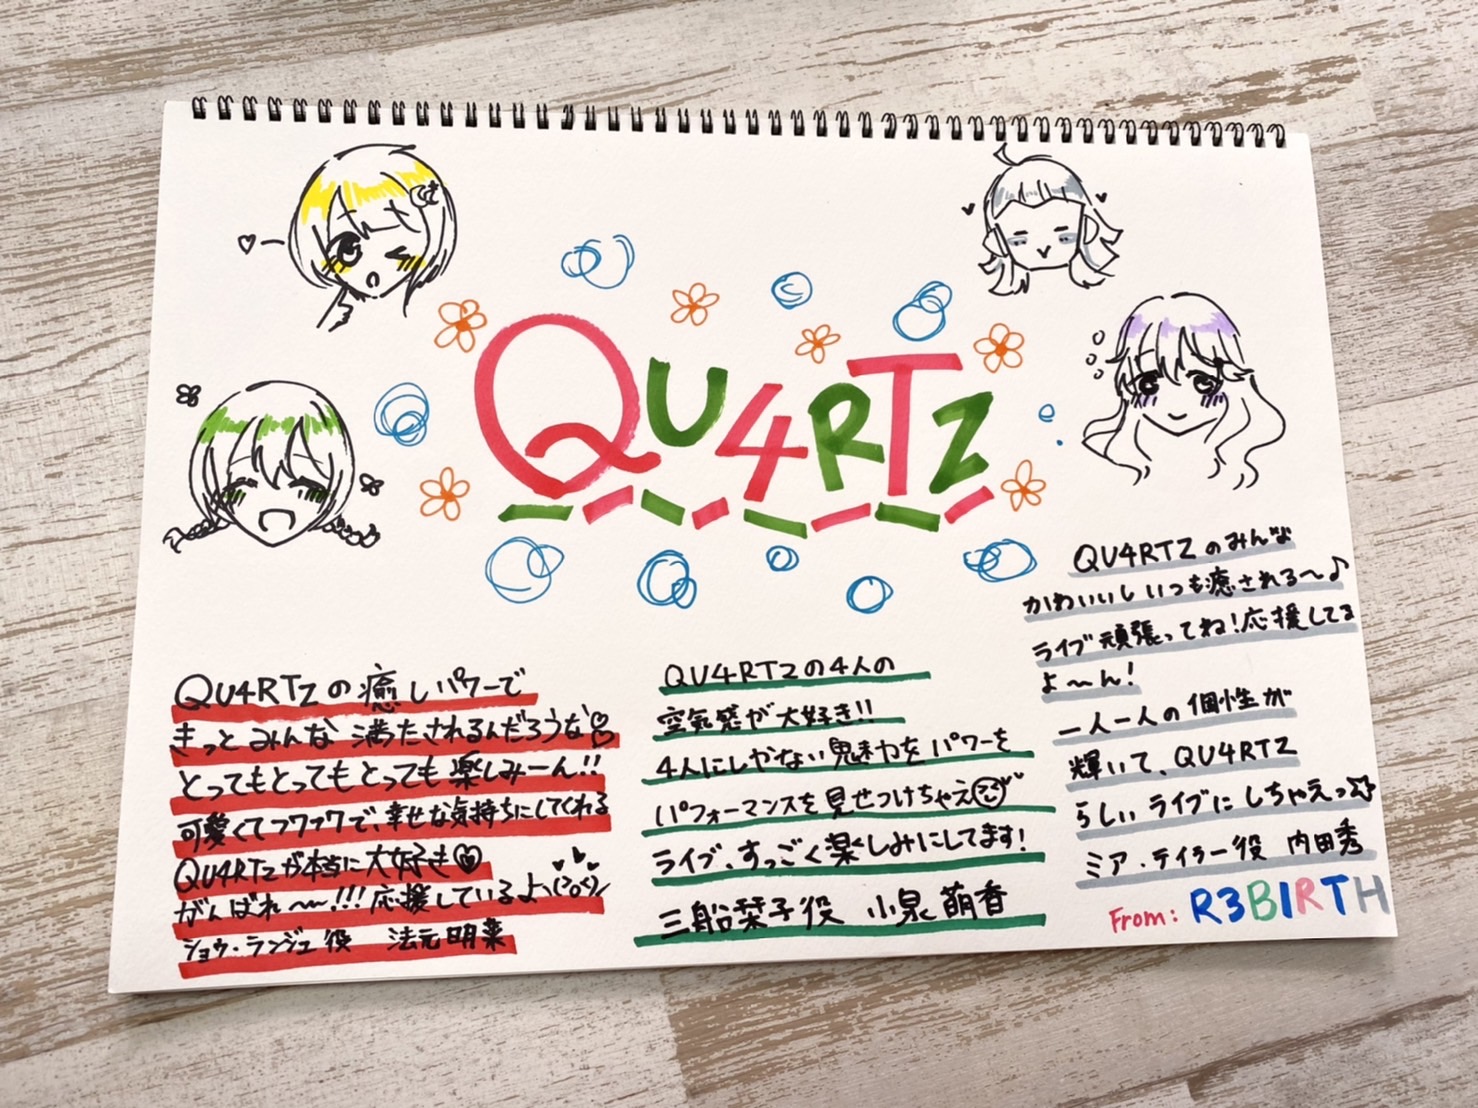 QU4RTZ
QU4RTZの癒しパワーで
きっとみんな満たされるんだろうな♡
とってもとってもとっても楽しみーん!!
可愛くてフワフワで、幸せな気持ちにしてくれる
QU4RTZが本当に大好き♡
がんばれ〜!!!応援しているよ
ショウ・ランジュ役 法元明菜
QU4RTZの4人の
空気感が大好き!!
4人にしかない魅力をパワーを
パフォーマンスを見せつけちゃえ
ライブ、すっごく楽しみにしてます!
三船栞子役 小泉萌香
QU4RTZのみんな
かわいいし いつも癒される〜♪
ライブ頑張ってね!応援してる
よ〜ん!
一人一人の個性が
輝いて、QU4RTZ
らしい ライブに しちゃえっ♪
ミア・テイラー役 内田秀
From: R3BIRTH